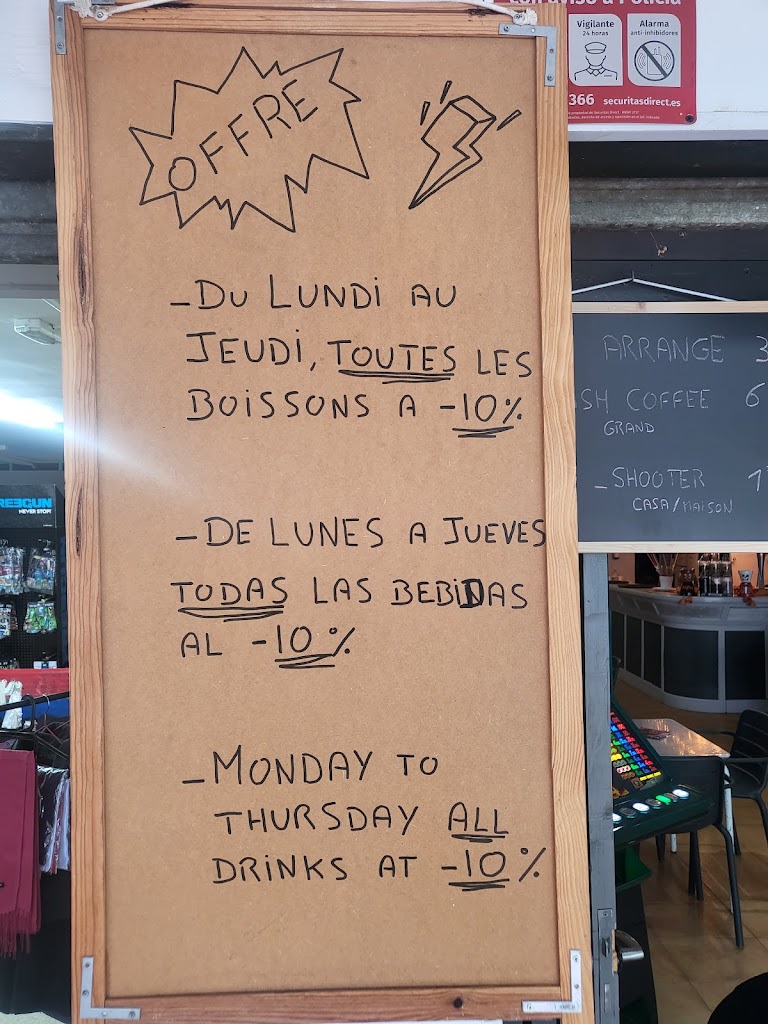 Vigilante
24 horas
Alarma
anti-inhibidores
366 securitasdirect.es
OFFRE
-DU LUNDI AU
JEUDI, TOUTES LES
BOISSONS A -10%
-DE LUNES A JUEVES
TODAS LAS BEBIDAS
AL -10%
-MONDAY TO
THURSDAY ALL
DRINKS AT -10%
ARRANGE 3
SH COFFEE 6
GRAND
-SHOOTER 1
CASA/MAISON
REEGUN
NEVER STOP!